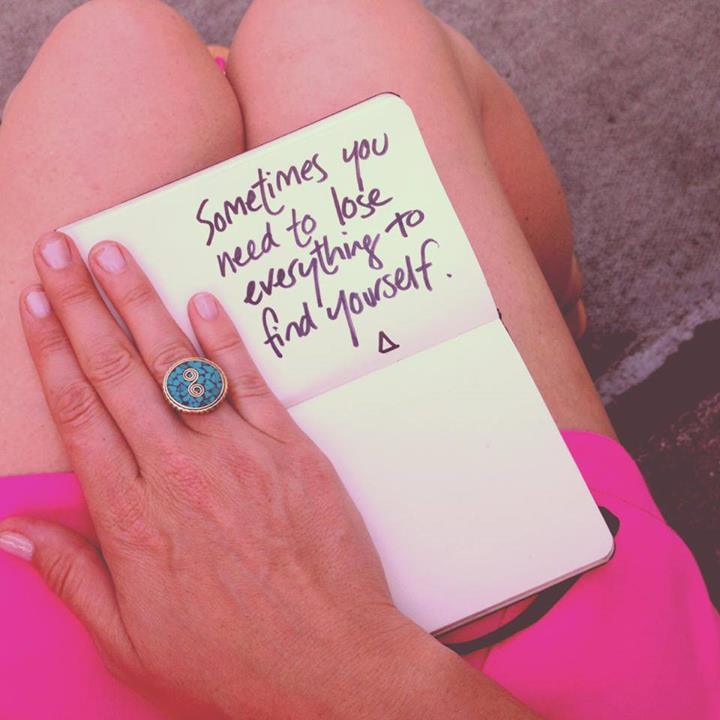 Sometimes you
need to lose
everything to
find yourself.